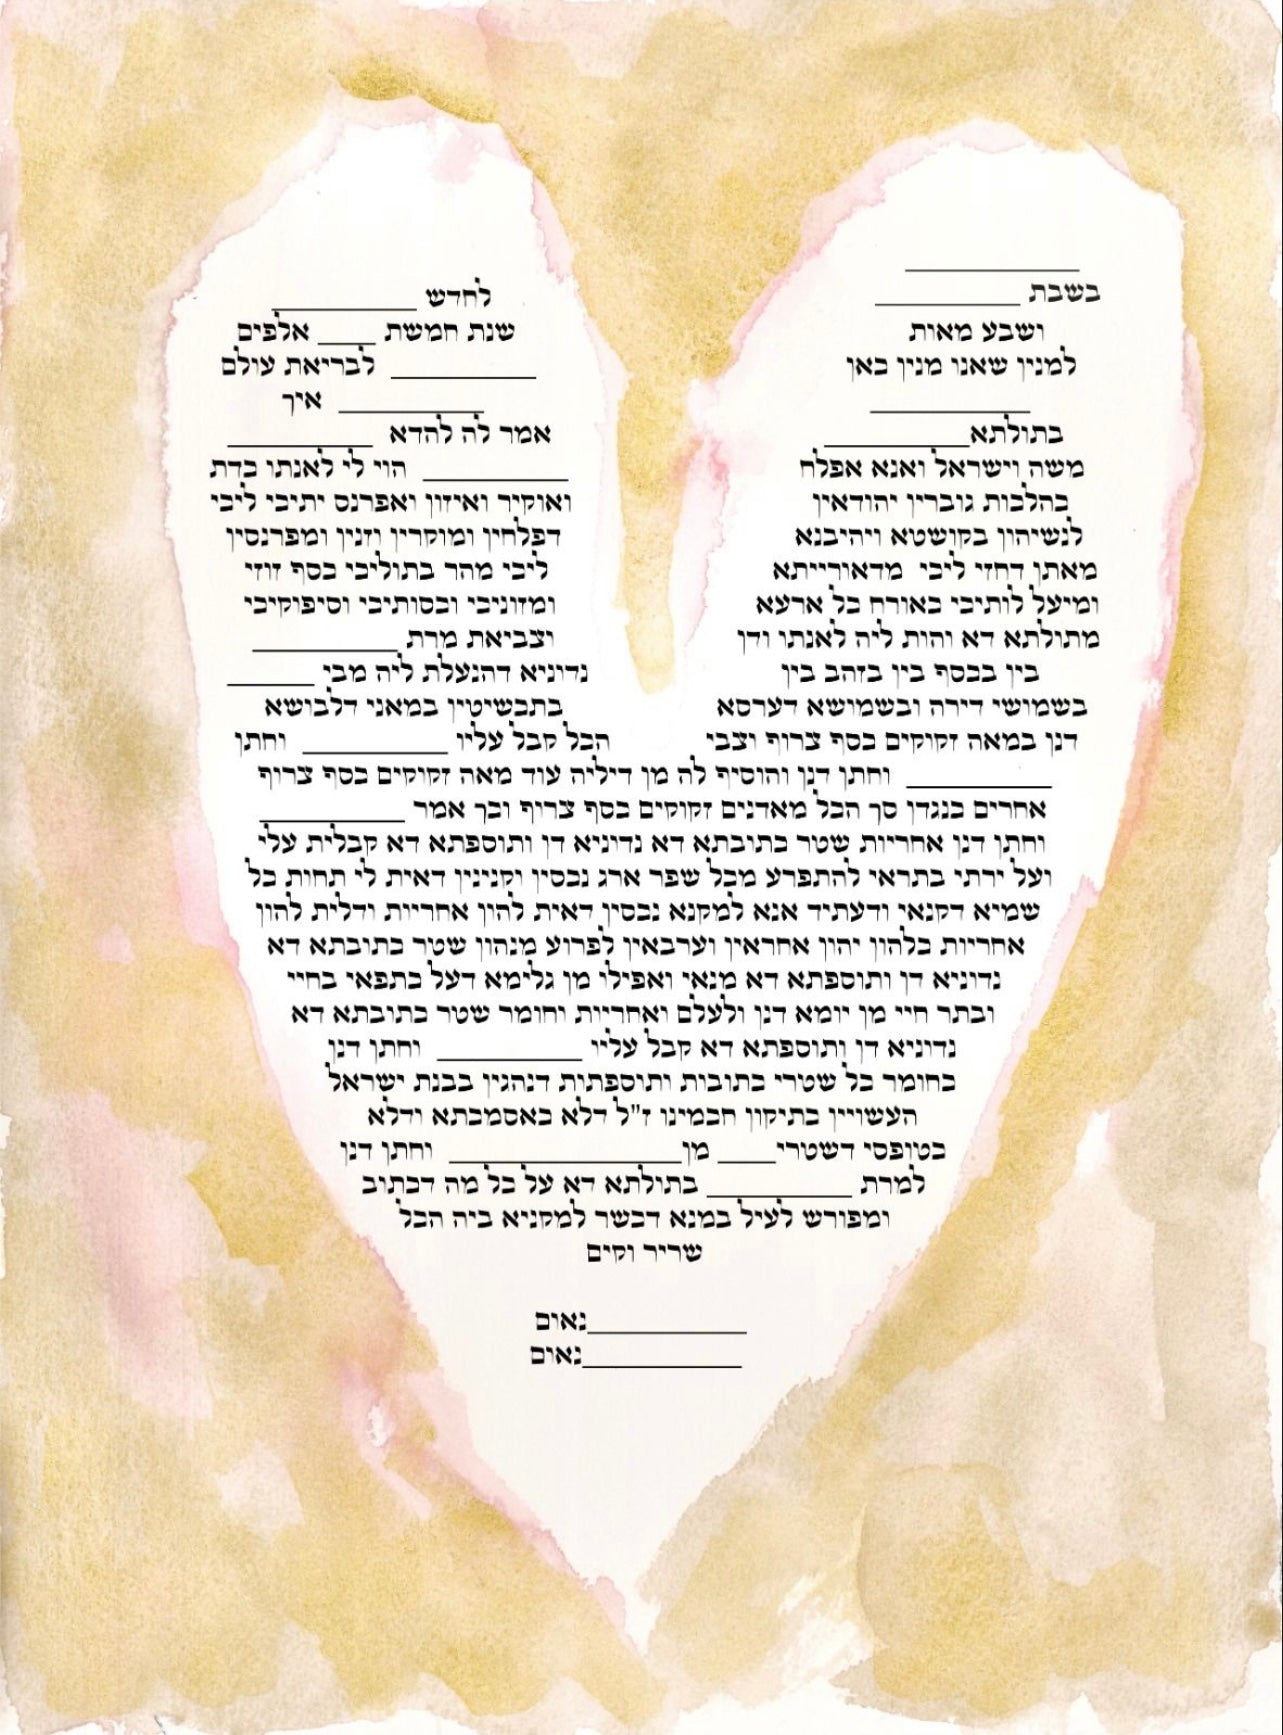 ____________
בשבת __________
לחדש __________
שנת חמשת ____ אלפים
ושבע מאות
__________ לבריאת עולם
למנין שאנו מנין כאן
__________ איך
___________
אמר לה להדא __________
בתולתא__________
__________ הוי לי לאנתו כדת
משה וישראל ואנא אפלח
ואוקיר ואיזון ואפרנס יתיכי ליכי
בהלכות גוברין יהודאין
דפלחין ומוקרין וזנין ומפרנסין
לנשיהון בקושטא ויהיבנא
ליכי מהר בתוליכי כסף זוזי
מאתן דחזי ליכי מדאורייתא
ומזוניכי וכסותיכי וסיפוקיכי
ומיעל לותיכי כאורח כל ארעא
וצביאת מרת __________
מתולתא דא והות ליה לאנתו ודן
נדוניא דהנעלת ליה מבי ______
בין בכסף בין בזהב בין
בתכשיטין במאני דלבושא
בשמושי דירה ובשמושא דערסא
הכל קבל עליו __________ וחתן
דנן במאה זקוקים כסף צרוף וצבי
__________ וחתן דנן והוסיף לה מן דיליה עוד מאה זקוקים כסף צרוף
אחרים כנגדן סך הכל מאדנים זקוקים כסף צרוף וכך אמר __________
וחתן דנן אחריות שטר כתובתא דא נדוניא דן ותוספתא דא קבלית עלי
ועל ירתי בתראי להתפרע מכל שפר ארג נכסין וקנינין דאית לי תחות כל
שמיא דקנאי ודעתיד אנא למקנא נכסין דאית להון אחריות ודלית להון
אחריות כלהון יהון אחראין וערבאין לפרוע מנהון שטר כתובתא דא
נדוניא דן ותוספתא דא מנאי ואפילו מן גלימא דעל כתפאי בחיי
ובתר חיי מן יומא דנן ולעלם ואחריות וחומר שטר כתובתא דא
נדוניא דן ותוספתא דא קבל עליו __________ וחתן דנן
כחומר כל שטרי כתובות ותוספתות דנהגין בבנת ישראל
העשויין כתיקון חכמינו ז"ל דלא כאסמכתא ודלא
כטופסי דשטרי____ מן________________ וחתן דנן
למרת __________ בתולתא דא על כל מה דכתוב
ומפורש לעיל במנא דכשר למקניא ביה הכל
שריר וקים
___________נאום
___________נאום